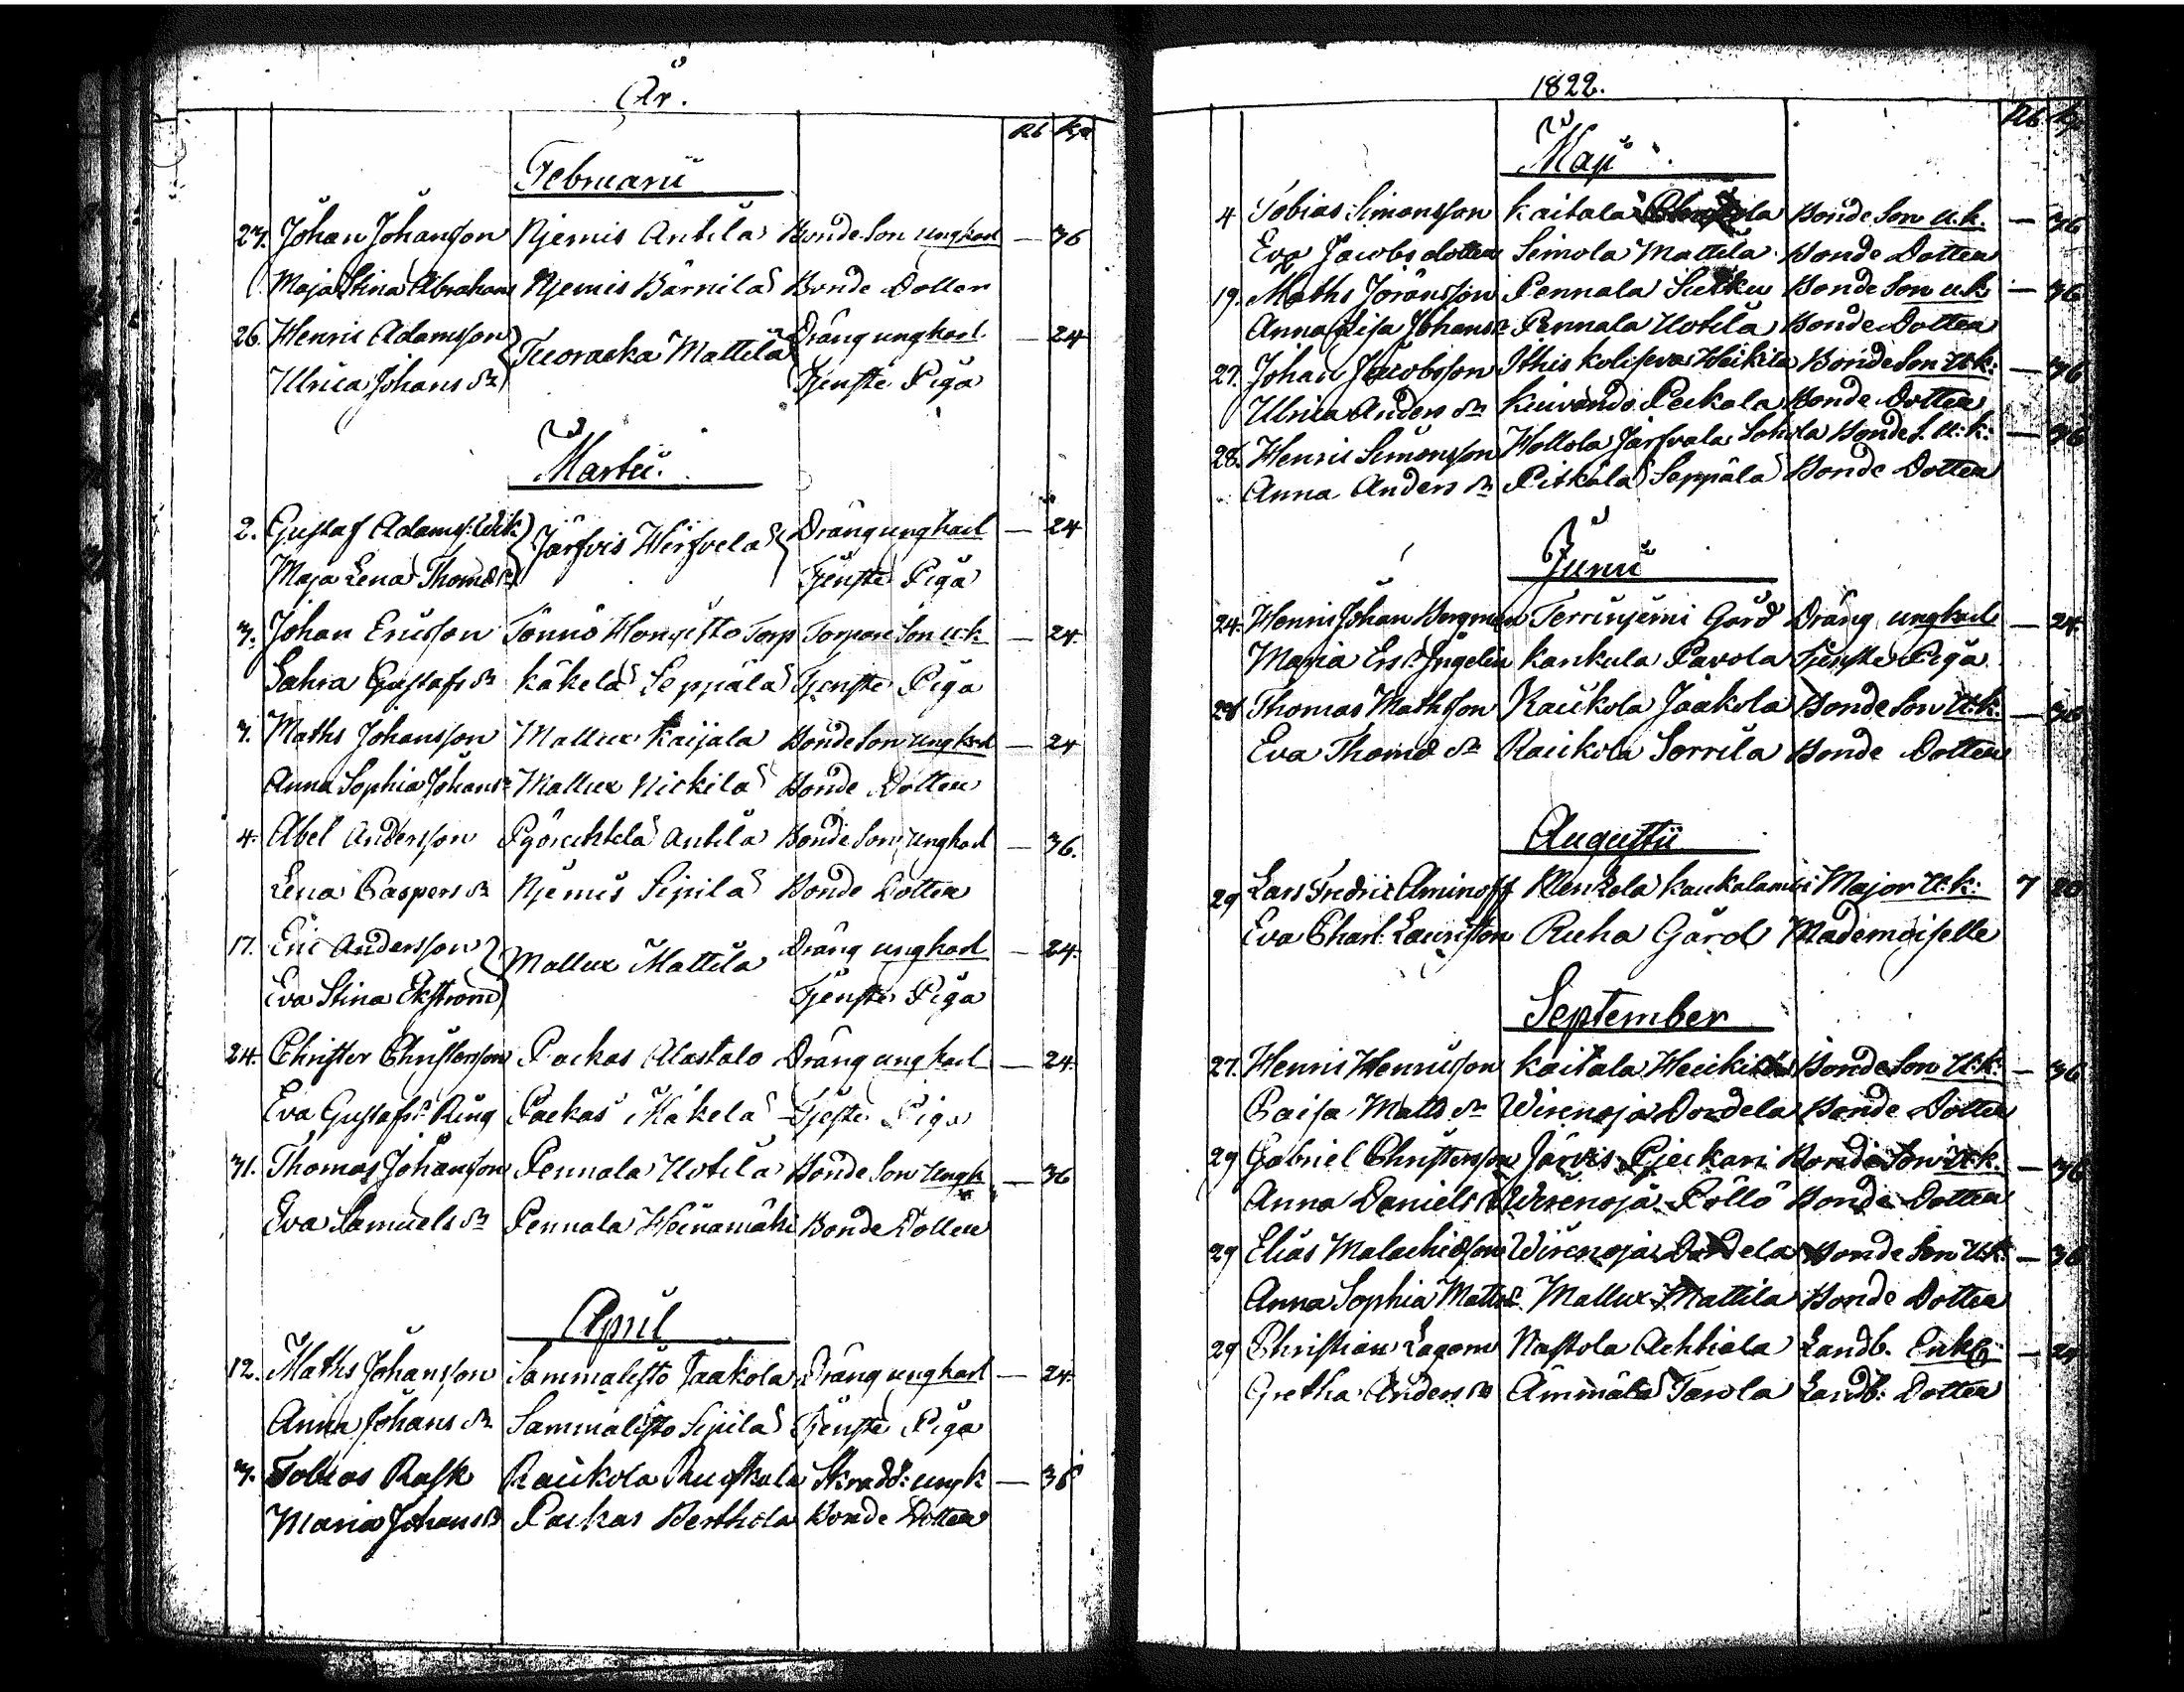 År.
Rb Kp
Februarii
27. Johan Johansson Njemis Antila Bonde Son ungkarl — 36
Maja Stina Abrahams Njemis Bärnilä Bonde Dotter
26. Henric Adamsson Tuoraska Mattila Dräng ungkarl — 24
Ulrica Johans dr Tjenste Piga
Martii.
2. Gustaf Adamss: Järfvis Hirfvelä Dräng ungkarl — 24
Maja Lena Thomæ dr Tjenste Piga
3. Johan Ericsson Tönnö Hongisto Torp Torpare Son u:k — 24
Sahra Gustafs dr Käkelä Seppälä Tjenste Piga
3. Maths Johansson Mallux Kaijala Bonde Son ungkarl — 24
Anna Sophia Johans dr Mallux Nickilä Bonde Dotter
4. Abel Andersson Pyöruhtilä Antila Bonde Son ungkarl — 36.
Lena Caspers dr Njemis Sipilä Bonde Dotter
17. Eric Andersson Mallux Mattila Dräng ungkarl — 24.
Eva Stina Ekström Tjenste Piga
24. Christer Christersson Packas Alastalo Dräng ungkarl — 24.
Eva Gustafs dr Ring Packas Mäkelä Tjeste Piga
31. Thomas Johansson Pennala Uotila Bonde Son Ungk — 36
Eva Samuels dr Pennala Heinämäki Bonde Dotter
April
12. Maths Johansson Sammalisto Jaakola Dräng ungkarl — 24.
Anna Johans dr Sammalisto Sipilä Tjenste Piga
Tobias Rask Raikola Ruoskala Skradd: ungk — 36
Maria Johans dr Packas Berthila Bonde Dotter
1822.
Rb Kp
Maji
4 Tobias Simonsson Kaitala Bonde Son u.k. — 36
Eva Jacobs dotter Simola Mattila Bonde Dotter
19. Maths Jöransson Pennala Bonde Son u.k — 36
Anna Lisa Johans dr Pennala Uotila Bonde Dotter
27. Johan Jacobsson Ithis Koliseva Heikila Bonde Son U:k: — 36
Ulrica Anders dr Kuivando Peckala Bonde Dotter
28. Henric Simonsson Hollola Järfvala Bonde S. U:k: — 36
Anna Anders dr Pitkälä Seppälä Bonde Dotter
Junii
24. Henric Johan Bergman Terrinjemi Gård Dräng ungkarl — 24.
Maria Ers dr Ingelin Kankula Pavola Tjenste Piga
28 Thomas Mathsson Raikola Jaakola Bonde Son U:k: — 36
Eva Thomæ dr Raikola Sorrila Bonde Dotter
Augusti
29 Lars Fredric Aminoff Klenkola Major U:k: 7 20
Eva Charl: Lauriston Ruha Gård Mademoiselle
September
27. Henric Henricsson Kaitala Bonde Son U:k: — 36
Caisa Matts dr Wirenoja Dordela Bonde Dotter
29 Gabriel Christersson Järvis Pjeckari Bonde Son U:k. — 36
Anna Daniels dr Wirenoja Pöllö Bonde Dotter
29 Elias Malachiasson Wirenoja Dordela Bonde Son U:k: — 36
Anna Sophia Matts dr Mallux Mattila Bonde Dotter
29 Christian Lagom Nastola Achtiala Landb. Enkl: — 24
Gretha Anders dr Ämmälä Tarola Landb: Dotter